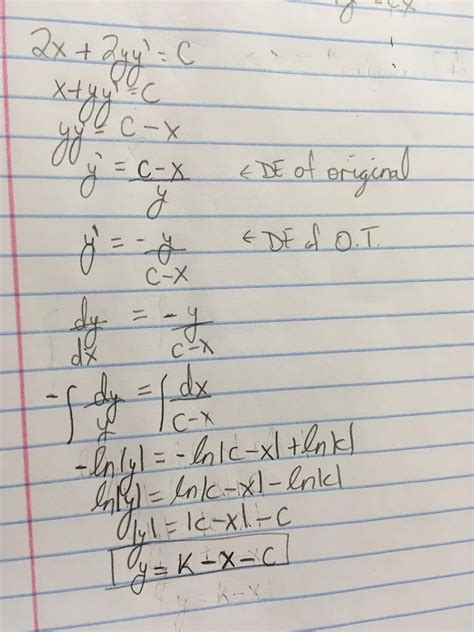 2x + 2yy' = C
x+yy' = C
yy' = C - x
y' = C-x / y ← DE of original
y' = - y / C-x ← DE of O.T.
dy/dx = - y / C-x
-∫ dy/y = ∫ dx / C-x
-ln|y| = -ln|C-x| + ln|k|
ln|y| = ln|C-x| - ln|k|
|y| = |C-x| - C
y = K - x - C
y = K-x